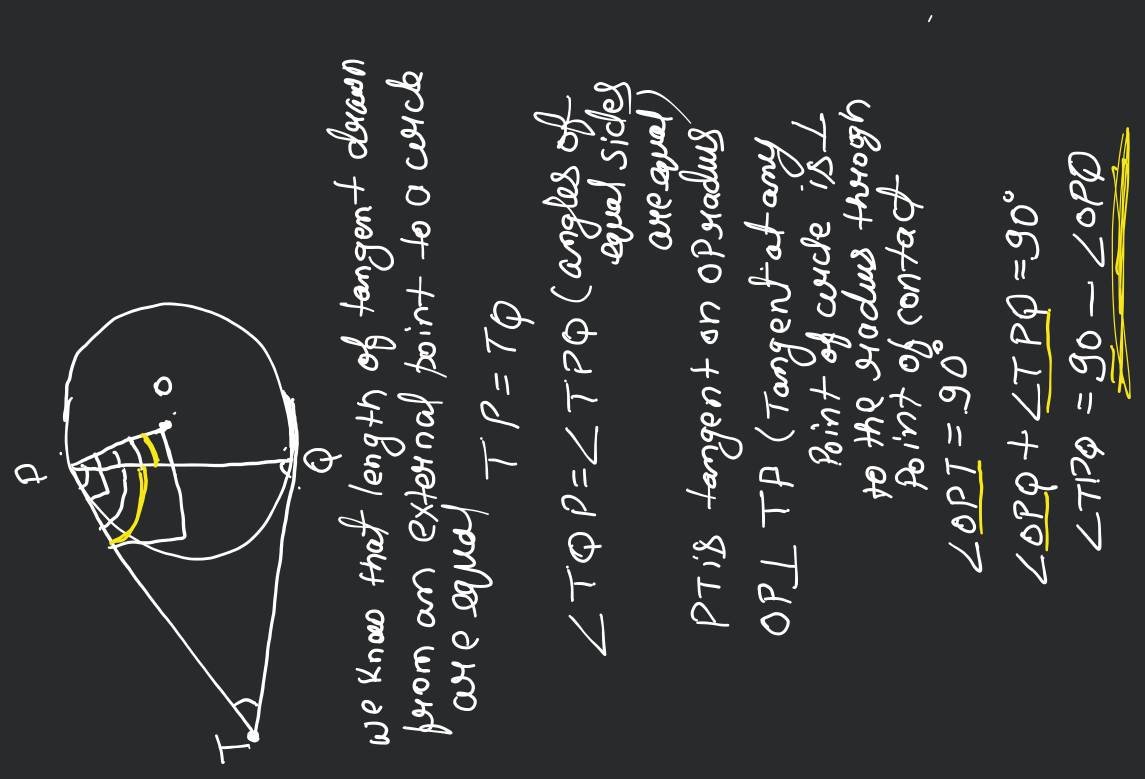 T
P
Q
O
we know that length of tangent drawn
from an external point to a circle
are equal
TP = TQ
∠TQP = ∠TPQ (angles of
equal sides
are equal)
PT is tangent on OP radius
OP ⊥ TP (Tangent at any
Point of circle is ⊥
to the radius throogh
Point of contact
∠OPT = 90°
∠OPQ + ∠TPQ = 90°
∠TPQ = 90 - ∠OPQ